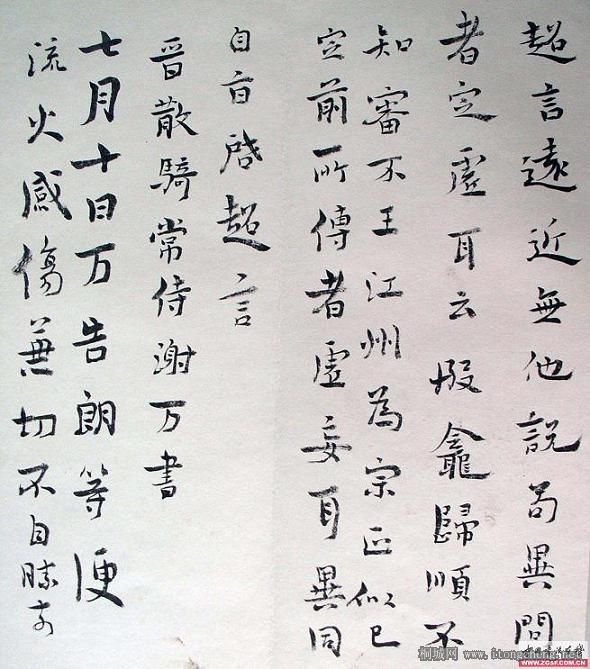 超言遠近無他說苟異問
者定虛耳云殷龕歸順不
知審不王江州為宗正似已
定前所傳者虛妄耳異同
自旨啓超言
晉散騎常侍謝万書
七月十日万告朗等便
流火感傷兼切不自勝奈
桐城网 www.itongcheng.net
www.ZGSF.com.CN